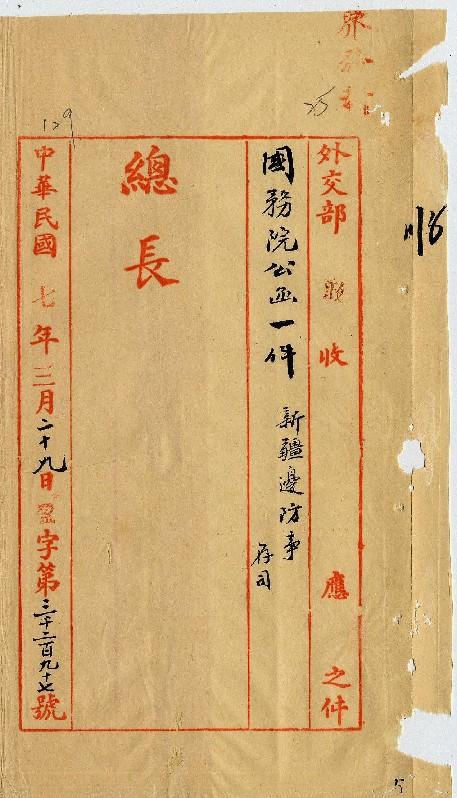 外交部 收 應 之件
國務院公函一件 新疆邊防事
存司
總長
中華民國七年三月二十九日 字第三千二百九十七號
118
129
25